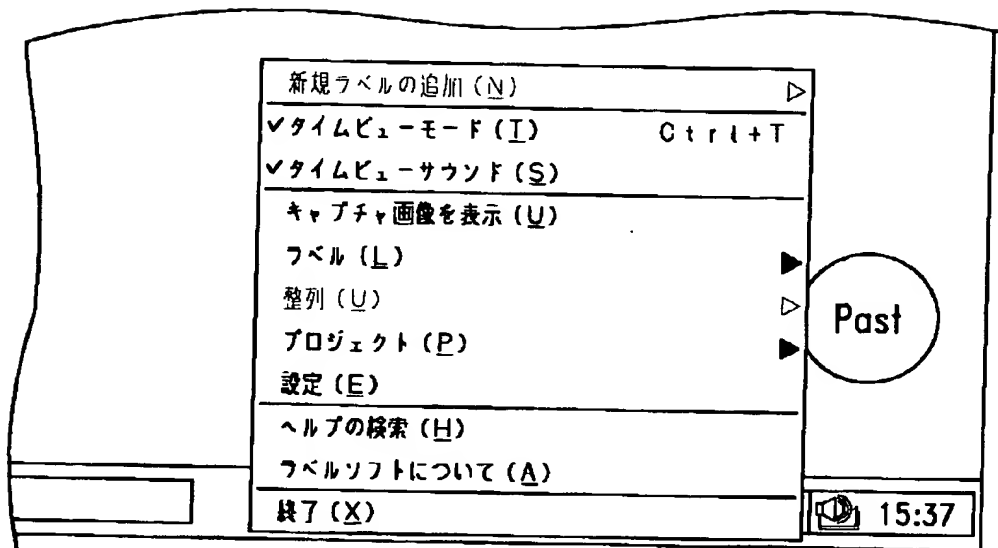 新規ラベルの追加(N)
✓タイムビューモード(T) Ctrl+T
✓タイムビューサウンド(S)
キャプチャ画像を表示(U)
ラベル(L)
整列(U)
プロジェクト(P)
設定(E)
ヘルプの検索(H)
ラベルソフトについて(A)
終了(X)
Past
15:37